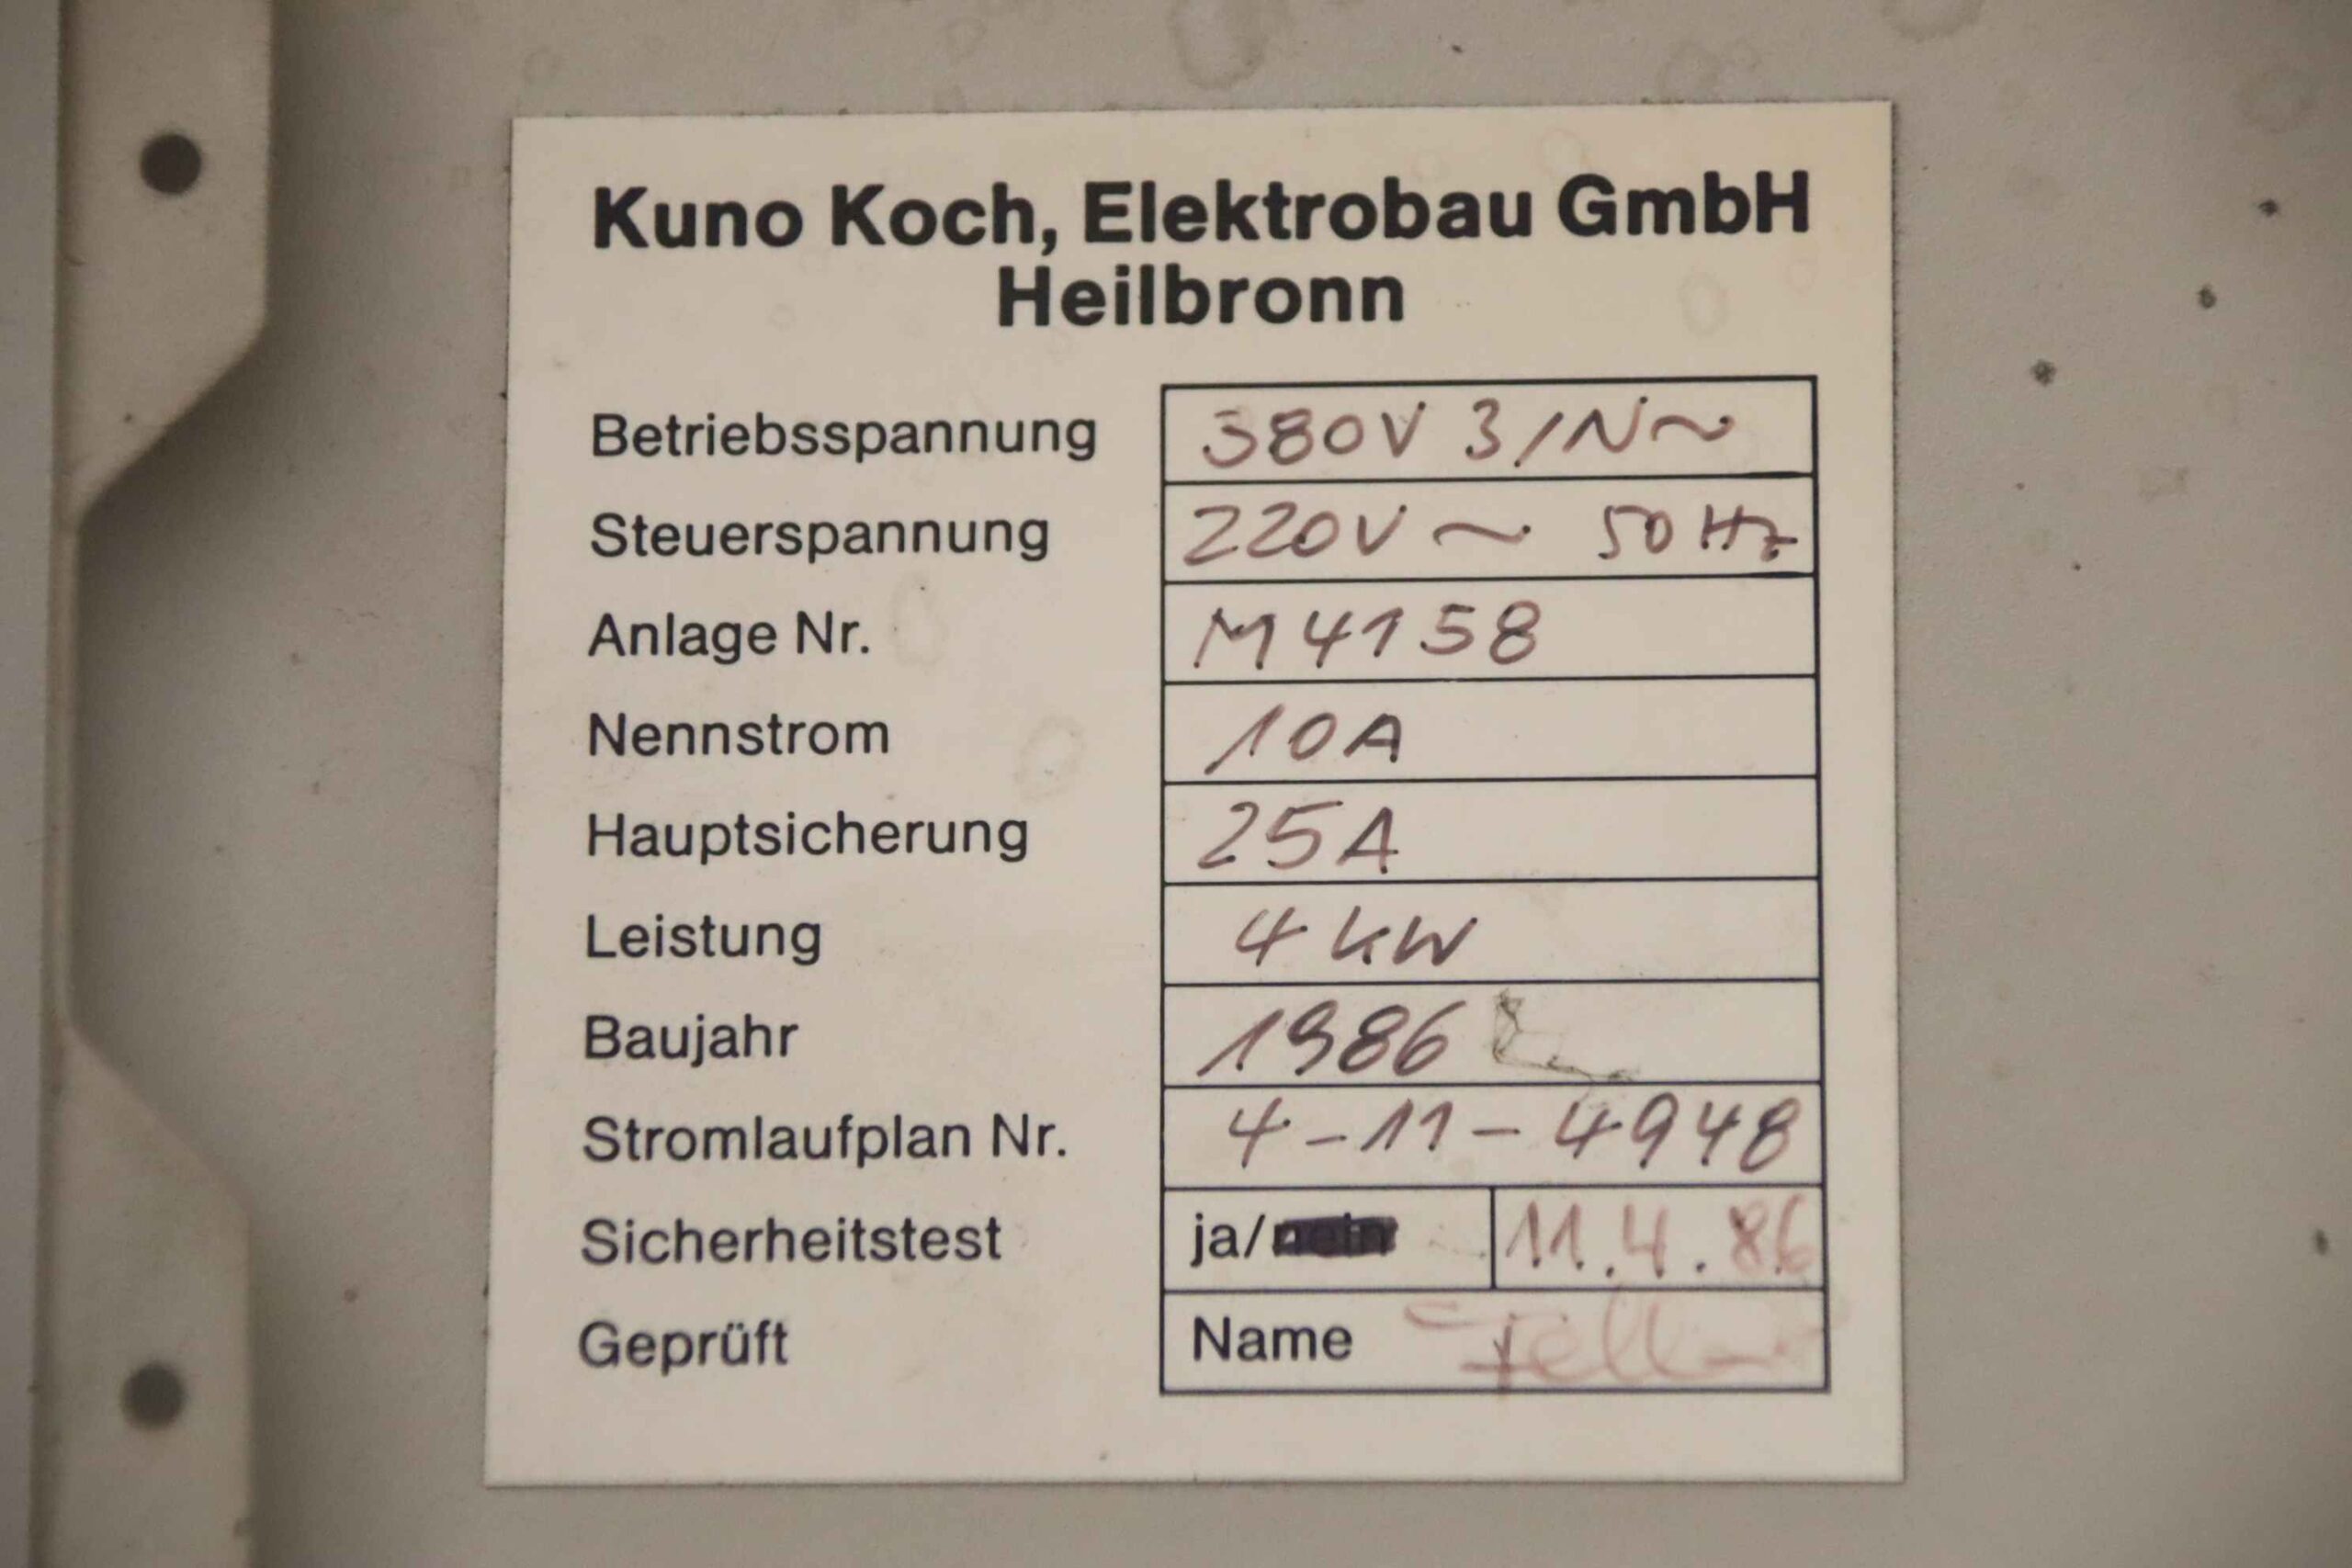 Kuno Koch, Elektrobau GmbH
Heilbronn
Betriebsspannung 380V 3/N~
Steuerspannung 220V ~ 50Hz
Anlage Nr. M4158
Nennstrom 10A
Hauptsicherung 25A
Leistung 4 kW
Baujahr 1986
Stromlaufplan Nr. 4-11-4948
Sicherheitstest ja/nein 11.4.86
Geprüft Name